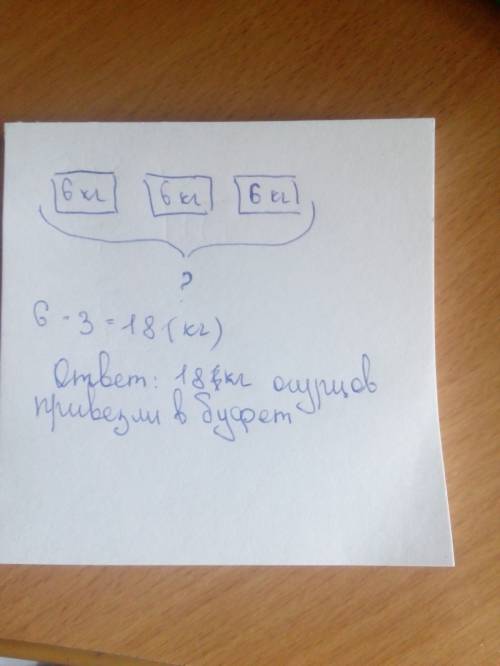 6 кг 6 кг 6 кг
?
6 · 3 = 18 (кг)
Ответ: 18 кг огурцов
привезли в буфет